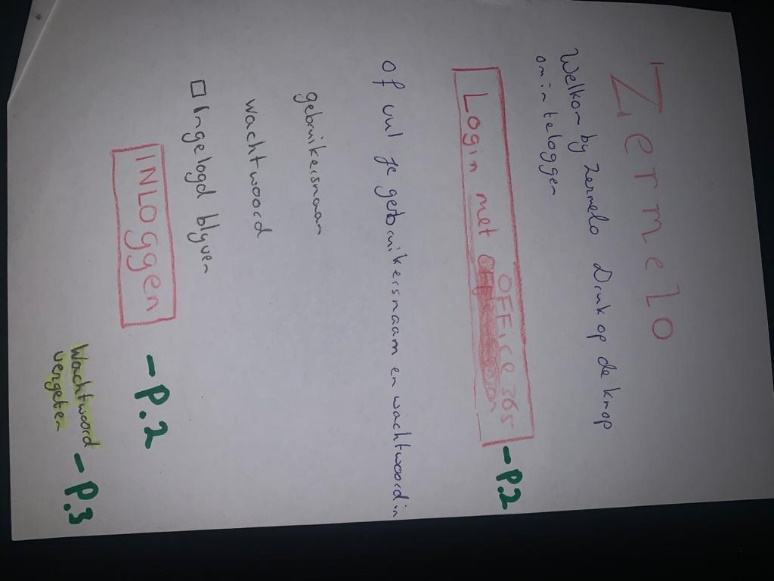 Zermelo
Welkom by Zermelo Druk op de knop
om in teloggen
Login met OFFice 365 -P.2
of vul je gebruikersnaam en wachtwoord in
gebruikersnaam
wachtwoord
Ingelogd blyven
INLoggen -P.2
Wachtwoord
vergeten -P.3